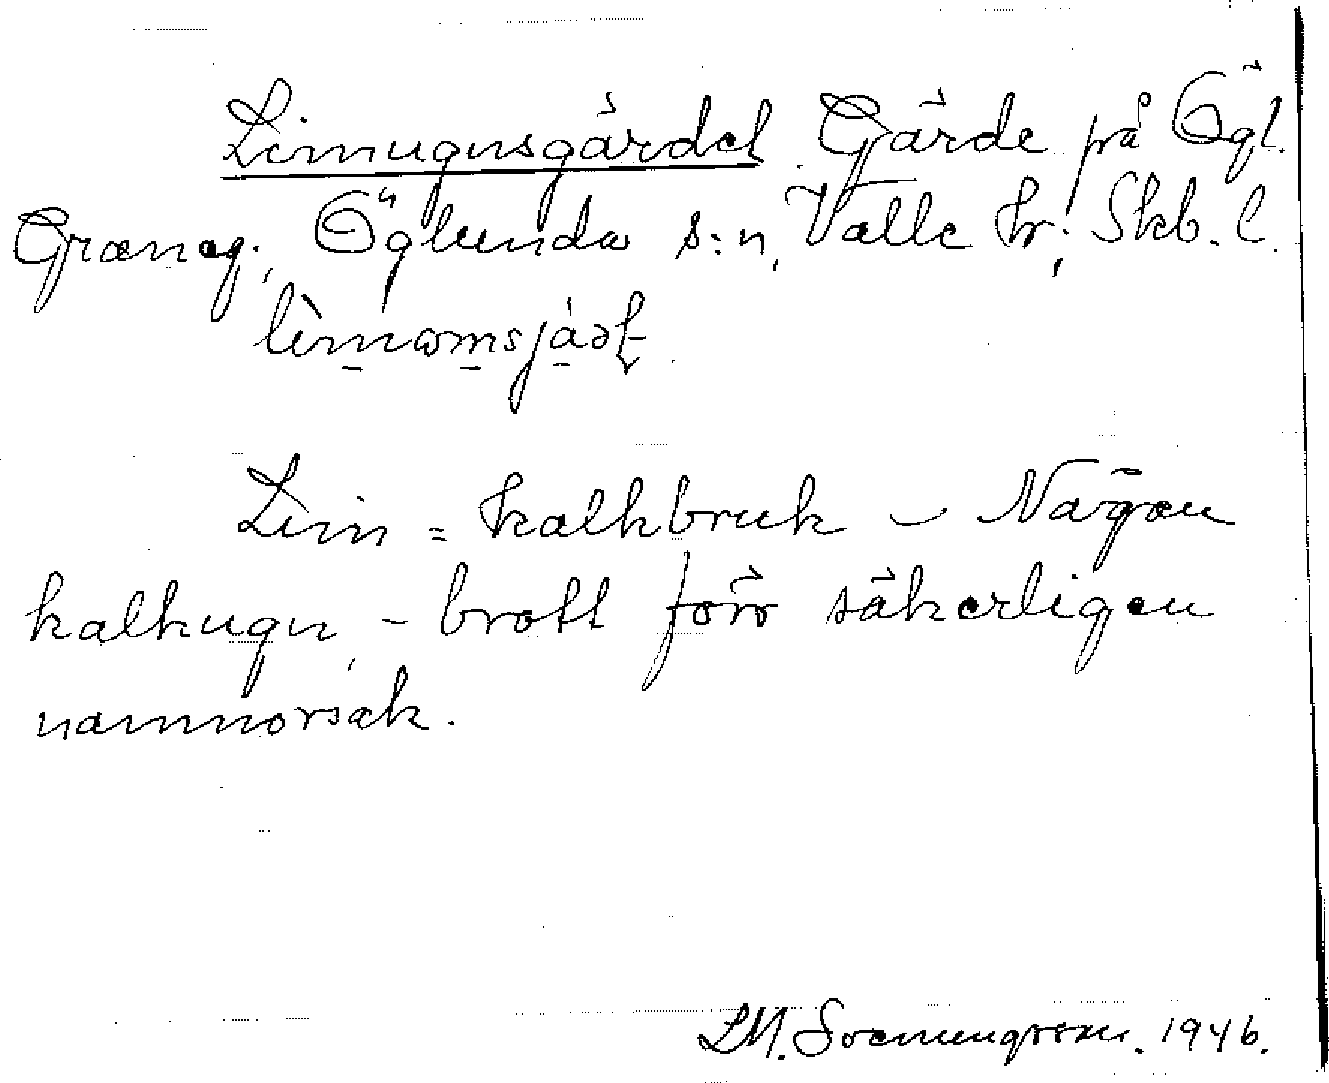 Limugnsgärdet. Gärde på Ögl.
Graneg., Öglunda s:n, Valle hr, Skb. l.
Lim = kalkbruk – Någon
kalkugn, - brott förr säkerligen
namnorsak.
LM. Svennungsson. 1946.